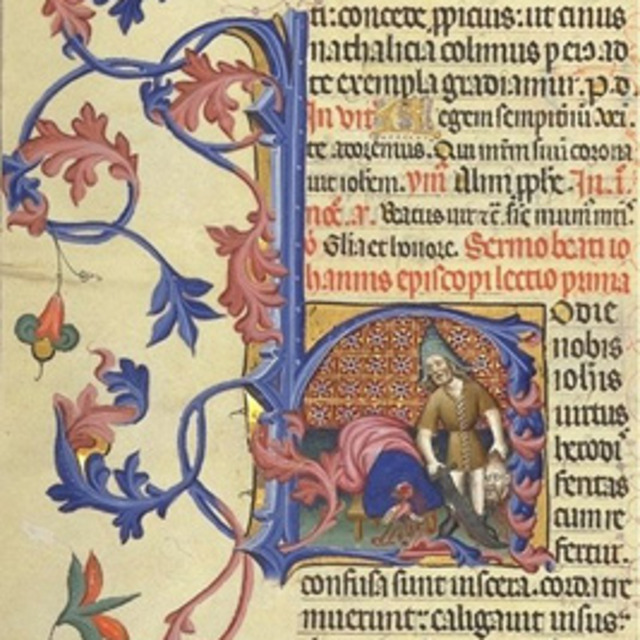 ti: concede ꝓpicius: ut cuius
nathalicia colimus p eiꝰ ad
te exempla gradiamur. p. d.
In vit Regem sempitnū
te adoremus. Qui corona
uit iohem.
Beatus uir
Glia et honore. Sermo beati io
hannis episcopi lectio prima
Hodie
nobis
ioh̄is
uirtus
herodi
feritas
cum re
fertur.
confusa sunt uiscera. corda tre
muerunt: caligauit uisus: